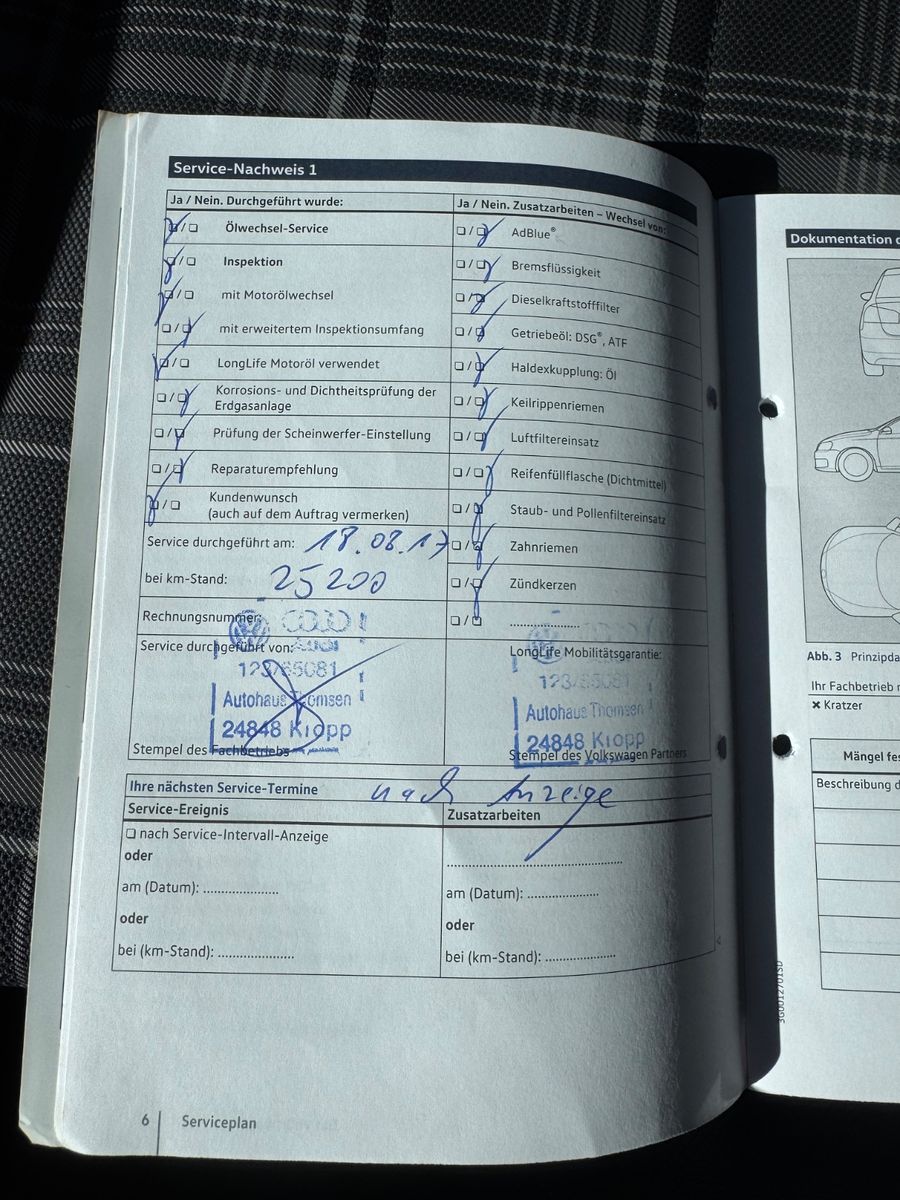 Service-Nachweis 1
Ja / Nein. Durchgeführt wurde:
Ölwechsel-Service
Inspektion
mit Motorölwechsel
mit erweitertem Inspektionsumfang
LongLife Motoröl verwendet
Korrosions- und Dichtheitsprüfung der
Erdgasanlage
Prüfung der Scheinwerfer-Einstellung
Reparaturempfehlung
Kundenwunsch
(auch auf dem Auftrag vermerken)
Ja / Nein. Zusatzarbeiten – Wechsel von:
AdBlue®
Bremsflüssigkeit
Dieselkraftstofffilter
Getriebeöl: DSG®, ATF
Haldexkupplung: Öl
Keilrippenriemen
Luftfiltereinsatz
Reifenfüllflasche (Dichtmittel)
Staub- und Pollenfiltereinsatz
Zahnriemen
Zündkerzen
Service durchgeführt am: 18.08.17
bei km-Stand: 25200
Rechnungsnummer:
Service durchgeführt von:
Audi
123/85081
Autohaus Thomsen
24848 Kropp
Stempel des Fachbetriebs
LongLife Mobilitätsgarantie:
123/85081
Autohaus Thomsen
24848 Kropp
Stempel des Volkswagen Partners
Ihre nächsten Service-Termine nach Anzeige
Service-Ereignis
nach Service-Intervall-Anzeige
oder
am (Datum): ....................
oder
bei (km-Stand): ....................
Zusatzarbeiten
am (Datum): ...................
oder
bei (km-Stand): ...................
6 Serviceplan
Dokumentation
Abb. 3
Ihr Fachbetrieb
× Kratzer
Mängel
Beschreibung
3G0012701SD